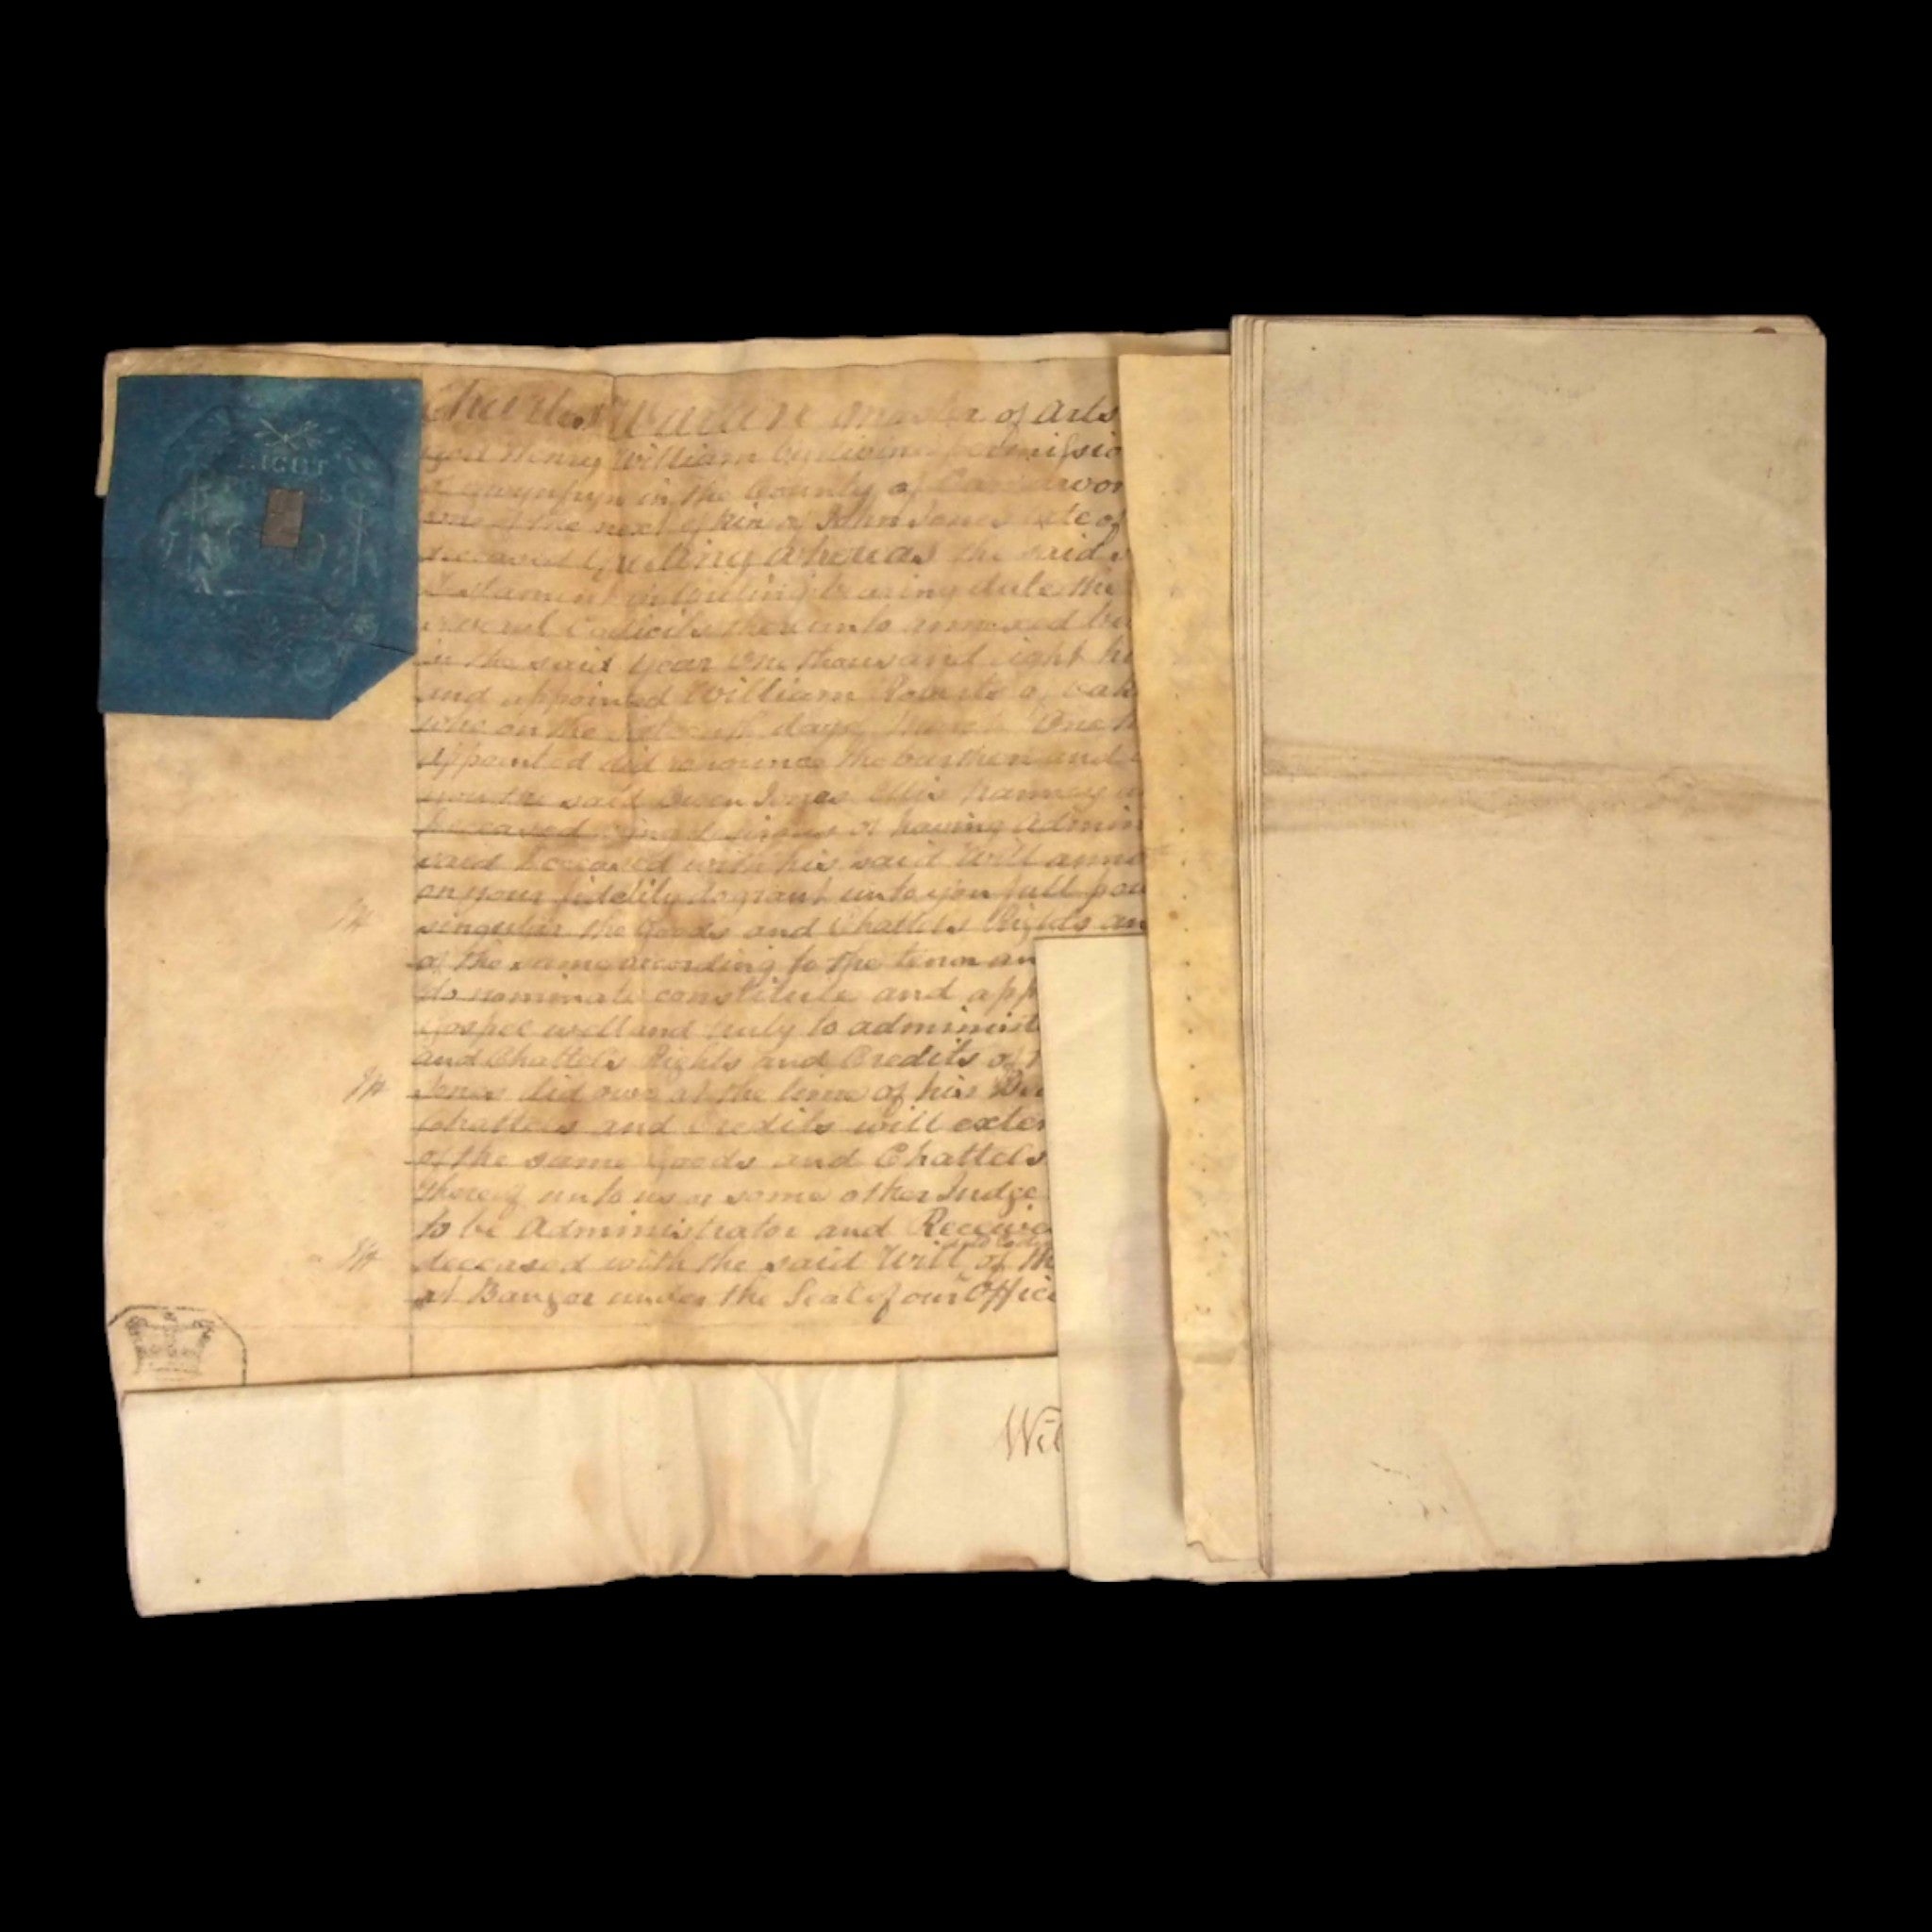 EIGHT
POUNDS
Charles Warren Master of Arts
Henry William by divine permissio
in the County of Carnarvon
the next of kin of John Jones late of
deceased Greeting Whereas the said
Testament in writing bearing date the
several Codicils thereunto annexed be
in the said year One thousand eight hu
and appointed William Roberts of
who on the day of March One th
appointed did renounce the burthen and
you the said Owen Jones Ellis Nanney
deceased being desirous of having Admin
said deceased with his said Will anne
on your fidelity do grant unto you full pow
singular the Goods and Chattels Rights an
of the same according to the tenor an
do nominate constitute and app
Gospel well and truly to administ
and Chattels Rights and Credits of
Jones did owe at the time of his De
Chattels and Credits will exten
of the same Goods and Chattels
thereof unto us or some other Judge
to be Administrator and Receive
deceased with the said Will of th
at Bangor under the Seal of our Offic
Wil